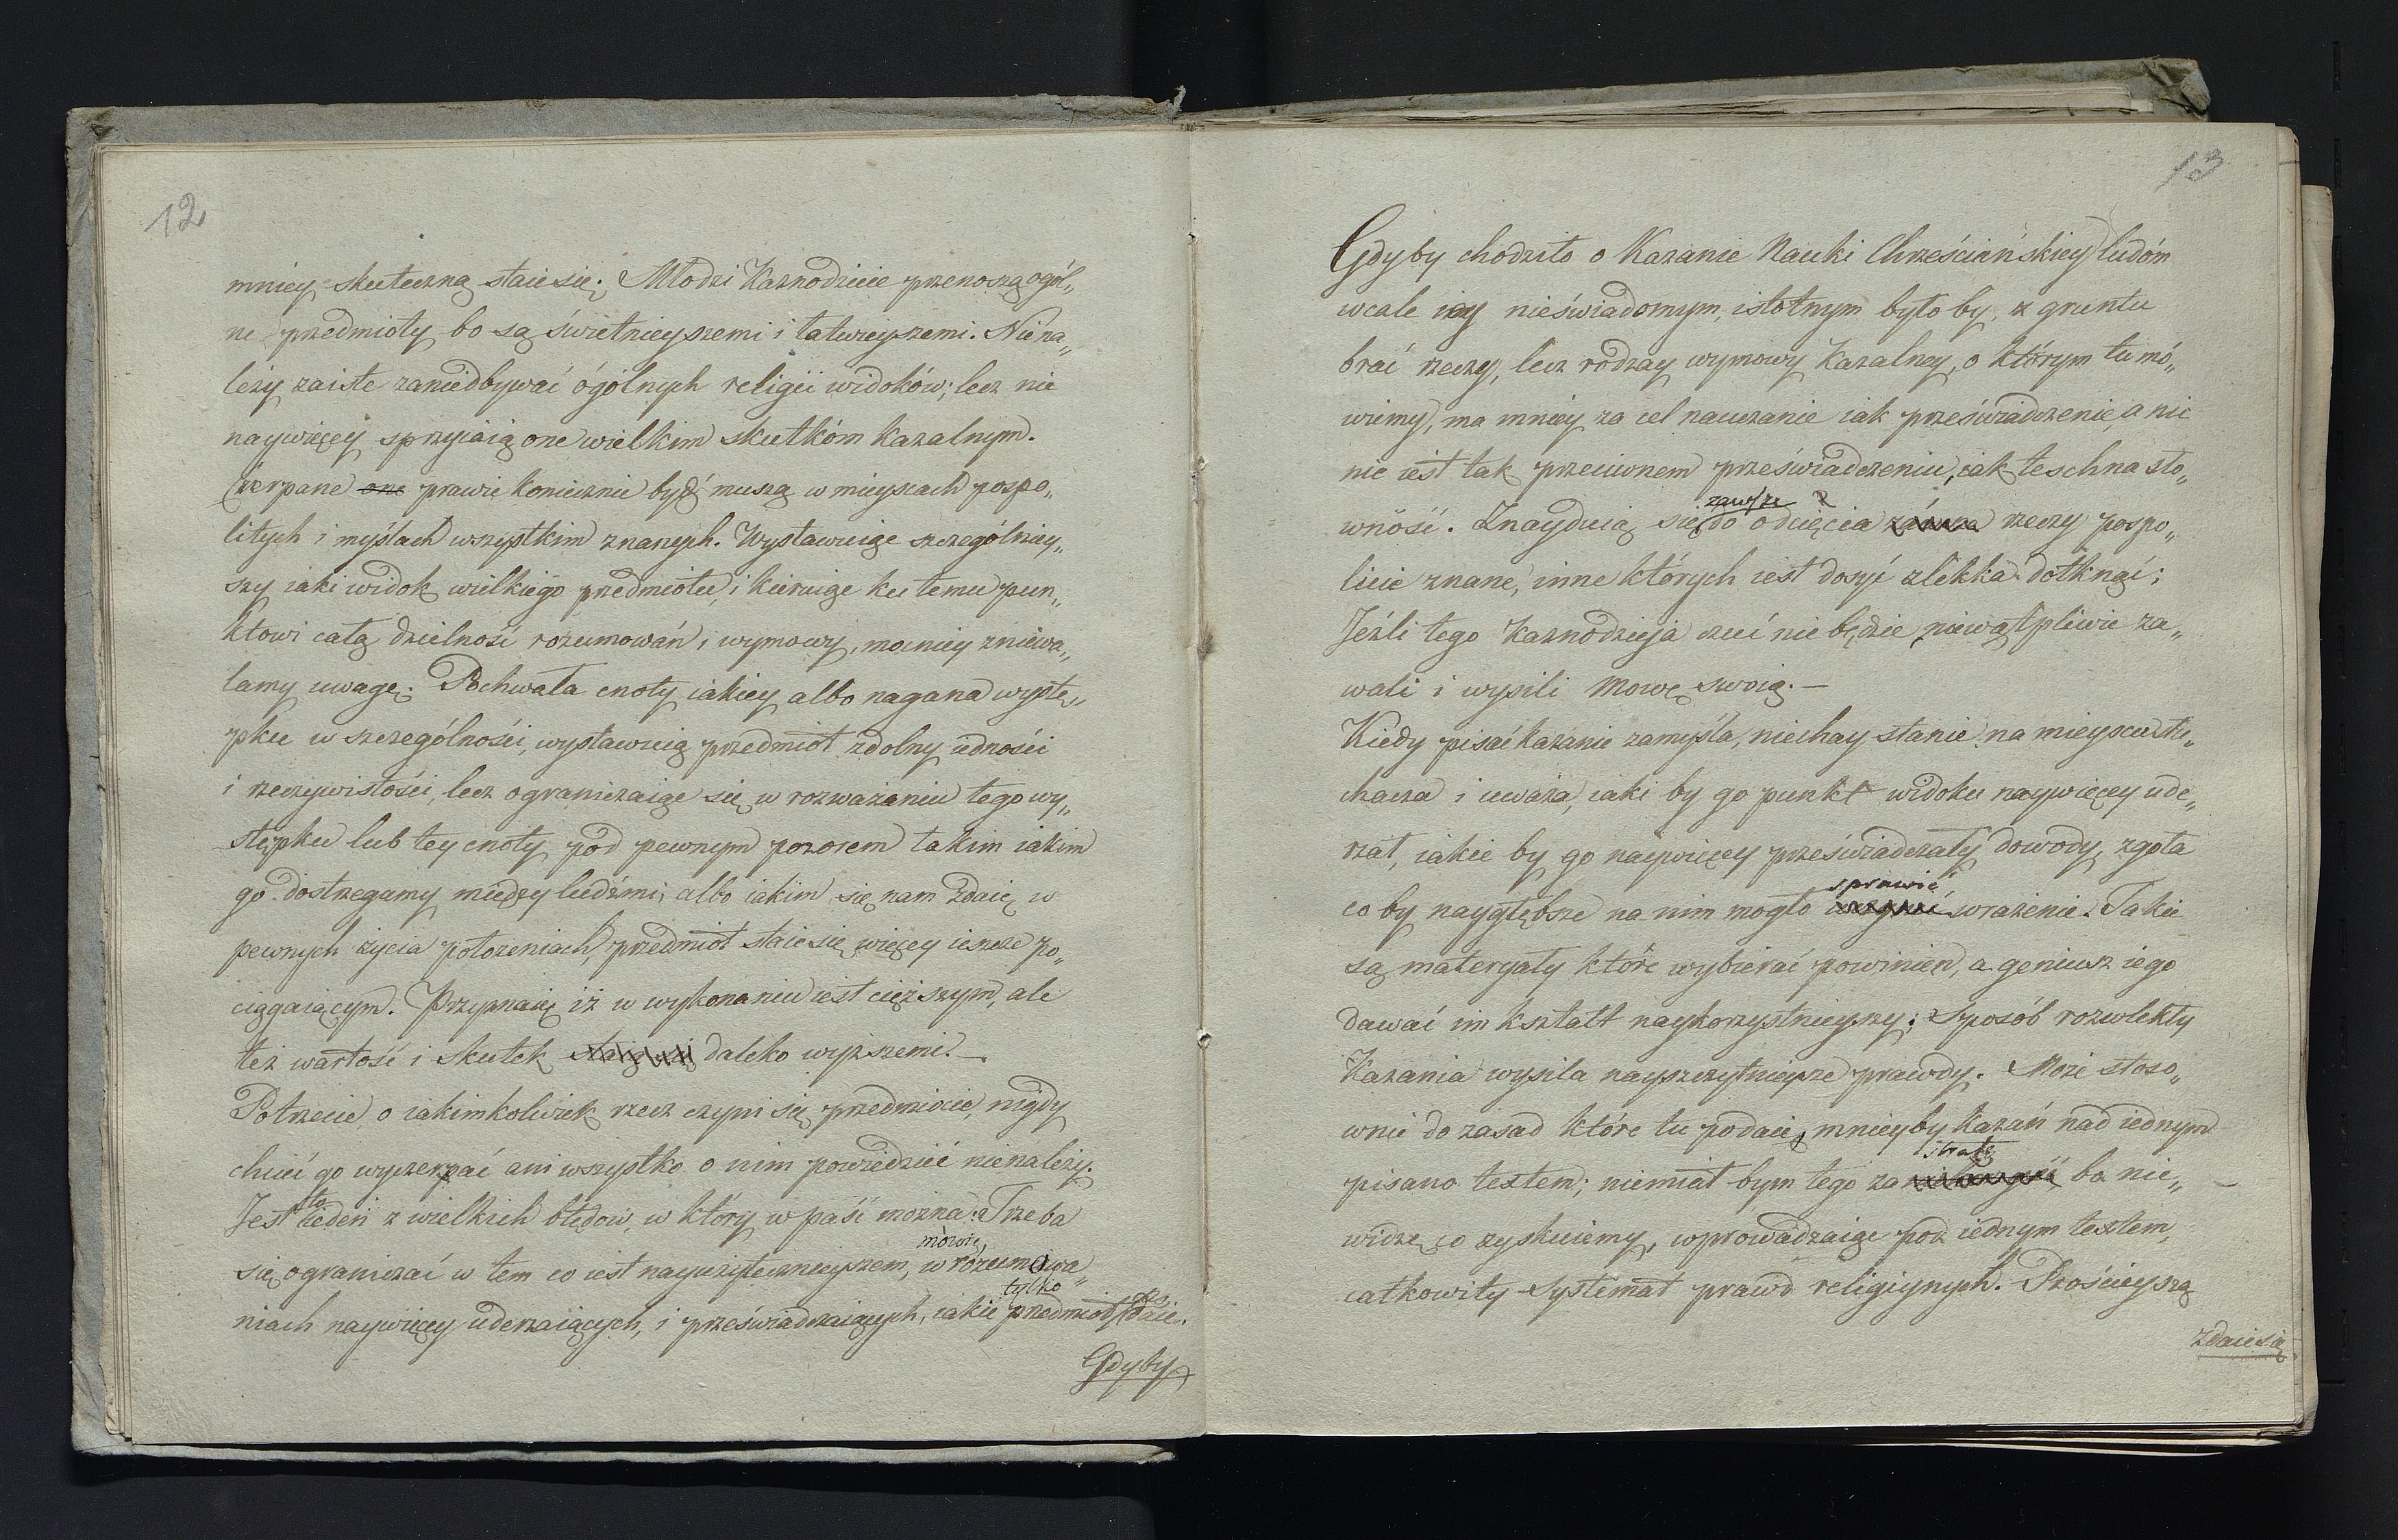 12
mniey skuteczną staie się. Młodzi Kaznodzieie przenoszą ogól„
ne przedmioty bo są świetnieyszemi i łatwieyszemi. Nie na„
leży zaiste zaniedbywać ogólnych religii widoków; lecz nie
naywięcey sprzyiaią one wielkim skutkóm kazalnym.
Czerpane one prawie koniecznie bydź muszą w mieyscach pospo„
litych i myślach wszystkim znanych. Wystawuiąc szczególniey„
szy iaki widok wielkiego przedmiotu, i kieruiąc ku temu pun„
ktowi całą dzielność rozumowań i wymowy, mocniey zniewa„
lamy uwagę. Pochwała cnoty iakiey albo nagana wystę„
pku w szczególności, wystawuią przedmiot zdolny iedności
i rzeczywistości, lecz ograniczaiąc się w rozważaniu tego wy„
stępku lub tey cnoty pod pewnym pozorem takim iakim
go dostrzegamy między ludźmi; albo iakim się nam zdaię w
pewnych życia położeniach, przedmiot staie się więcey ieszcze po„
ciągaiącym. Przyznaię iż w wykonaniu iest cięższym, ale
też wartość i skutek daleko wyższemi. —
Potrzecie, o iakimkolwiek rzecz czyni się przedmiocie, nigdy
chcieć go wyczerpać ani wszystko o nim powiedzieć nienależy.
Jest to ieden z wielkich błędów, w który wpaść można. Trzeba
mówię
się ograniczać w tem co iest nayużytecznieyszem, w rozumowa„
tylko
niach naywięcey uderzaiących, i przeświadczaiących, iakie przedmiot daie.
Gdyby
13
Gdyby chodziło o Kazanie Nauki Chrześciańskiey ludóm
wcale iey nieświadomym, istotnym było by, z gruntu
brać rzeczy, lecz rodzay wymowy Kazalney, o którym tu mó„
wiemy, ma mniey za cel nauczanie iak przeświadczenie, a nic
nie iest tak przeciwnem przeświadczeniu, iak teschna sło„
zawsze
wność. Znayduią się do odcięcia rzeczy pospo„
licie znane, inne których iest dosyć zlekka dotknąć;
Jeźli tego Kaznodzieja czuć nie będzie, niewątpliwie za„
wali i wysili Mowę swoią. —
Kiedy pisać kazanie zamyśla, niechay stanie na mieyscu słu„
chacza i uważa, iaki by go punkt widoku naywięcey ude„
rzał, iakie by go naywięcey przeświadczały dowody, zgoła
sprawić
co by naygłębsze na nim mogło wrażenie. Takie
są materyały które wybierać powinien, a geniusz iego
dawać im kształt naykorzystnieyszy; Sposób rozwlekły
Kazania wysila nayszczytnieysze prawdy. Może stoso„
wnie do zasad które tu podaię, mniey by kazań nad iednym
stratę
pisano textem; niemiał bym tego za bo nie„
widzę co zyskuiemy, wprowadzaiąc pod iednym textem,
całkowity Systemat prawd religiynych. Prościeyszą
zdaie się